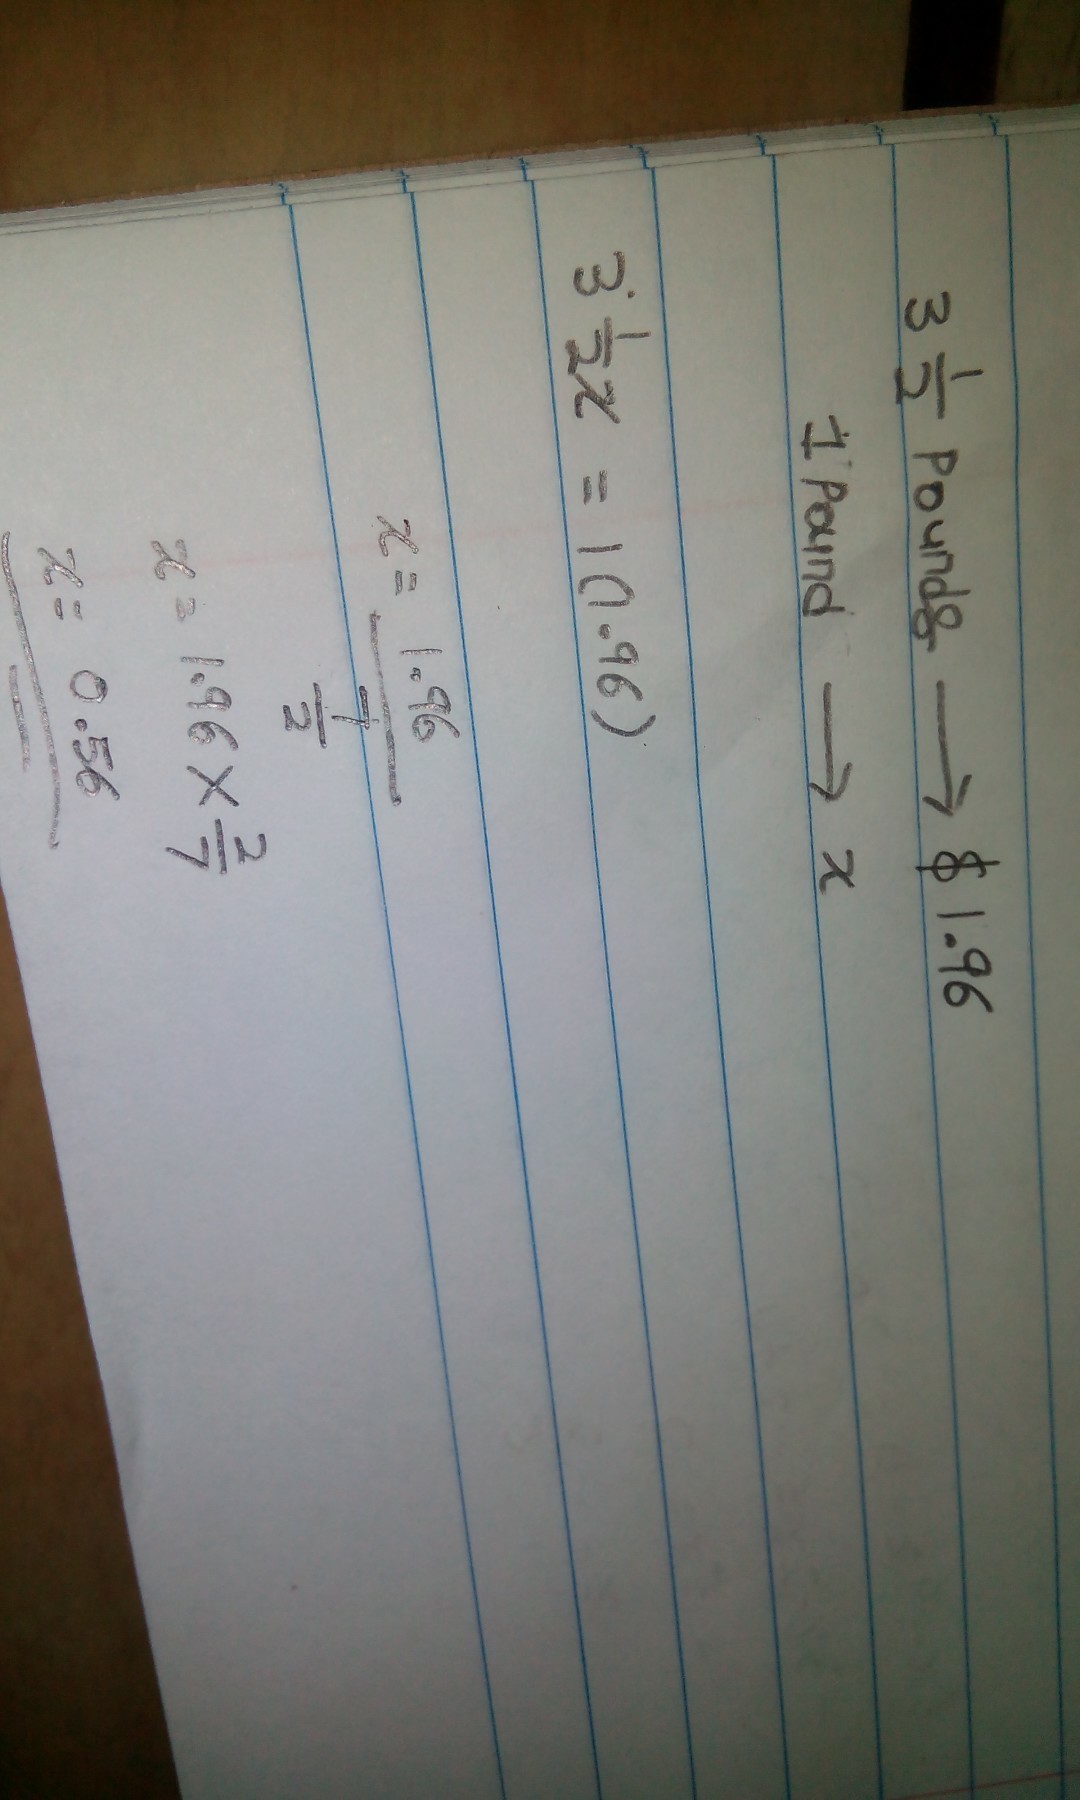 3 1/2 Pounds → $ 1.96
1 Pound → x
3 1/2 x = 1(1.96)
x = 1.96 / 7/2
x = 1.96 × 2/7
x = 0.56